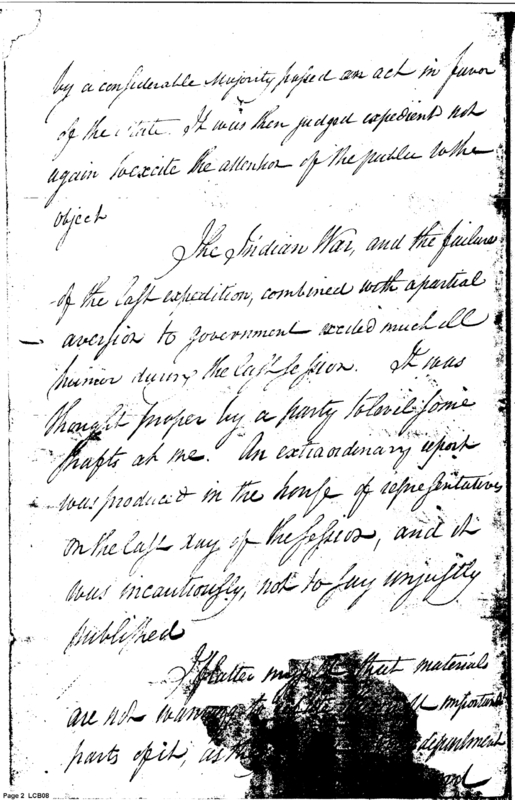 by a considerable Majority passed an act in favor
of the State. It was then judged expedient not
again to excite the attention of the public to the
object
The Indian War, and the failure
of the last expedition, combined with a partial
aversion to government excited much ill
humor during the last session. It was
thought proper by a party to level some
shafts at me. An extraordinary report
was produced in the house of representatives
on the last day of the session, and it
was incautiously, not to say unjustly
published
I flatter myself that materials
are not wanting to important
parts of it, as department
Page 2 LCB08